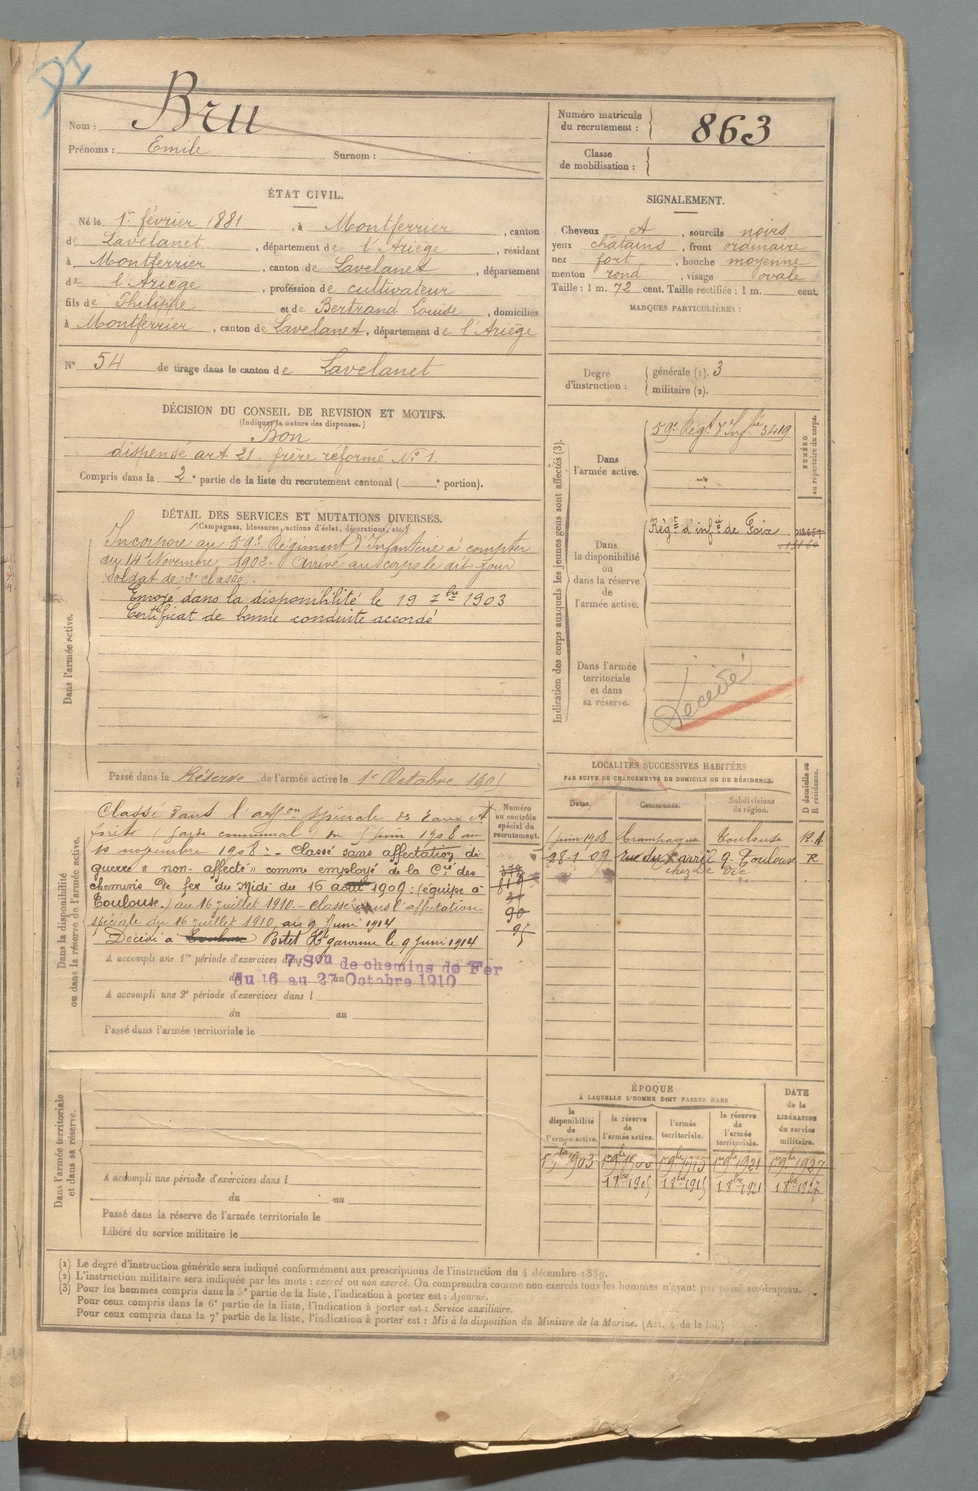 Nom : Bru
Prénoms : Emile Surnom :
Numéro matricule du recrutement : 863
Classe de mobilisation :
ÉTAT CIVIL.
Né le 1er février 1881, à Montferrier, canton
de Lavelanet, département de l'Ariège, résidant
à Montferrier, canton de Lavelanet, département
de l'Ariège, profession de cultivateur
fils de Philippe et de Bertrand Louise, domiciliés
à Montferrier, canton de Lavelanet, département de l'Ariège
N° 54 de tirage dans le canton de Lavelanet
SIGNALEMENT.
Cheveux et, sourcils noirs
yeux châtains, front ordinaire
nez fort, bouche moyenne
menton rond, visage ovale
Taille : 1 m. 72 cent. Taille rectifiée : 1 m. cent.
MARQUES PARTICULIÈRES :
Degré d'instruction : générale (1). 3
militaire (2).
DÉCISION DU CONSEIL DE REVISION ET MOTIFS.
(Indiquer la nature des dispenses.)
Bon
dispensé art 21 frère réformé N° 1
Compris dans la 2e partie de la liste du recrutement cantonal ( e portion).
DÉTAIL DES SERVICES ET MUTATIONS DIVERSES.
(Campagnes, blessures, actions d'éclat, décorations, etc.)
Dans l'armée active.
Incorporé au 59e Régiment d'Infanterie à compter
du 14 Novembre 1902. Arrivé au corps le dit jour
soldat de 2e classe.
Envoyé dans la disponibilité le 19 7bre 1903
Certificat de bonne conduite accordé
Passé dans la Réserve de l'armée active le 1er Octobre 1905
Indication des corps auxquels les jeunes gens sont affectés (3).
NUMÉRO au répertoire du corps.
Dans l'armée active.
59e Régt d'Infrie 3419
Dans la disponibilité ou dans la réserve de l'armée active.
Régt d'infie de Foix
Dans l'armée territoriale et dans sa réserve.
Décédé
Dans la disponibilité ou dans la réserve de l'armée active.
Numéro au contrôle spécial du recrutement.
Classé dans l'affon spéciale des Eaux et
forêts (garde communal) du 5 juin 1908 au
10 novembre 1908 : - Classé sans affectation de
guerre "non affecté" comme employé de la Cie des
chemins de fer du Midi du 16 août 1909 : (équipe à
Toulouse.) au 16 juillet 1910 - classé dans l'affectation
spéciale du 16 juillet 1910 au 9 Juin 1914
Décédé à Toulouse Portet Hte garonne le 9 Juin 1914
819
90
95
A accompli une 1re période d'exercices dans
7. Son de chemins de Fer
du 16 au 27 Octobre 1910
A accompli une 2e période d'exercices dans l
du au
Passé dans l'armée territoriale le
LOCALITÉS SUCCESSIVES HABITÉES
PAR SUITE DE CHANGEMENTS DE DOMICILE OU DE RÉSIDENCE.
Dates. Communes. Subdivisions de région. D domicile ou R résidence.
5 juin 1908 Crampagna Toulouse
28-1-09 rue du Xarril 9 Toulouse R
chez
ÉPOQUE
À LAQUELLE L'HOMME DOIT PASSER DANS
la disponibilité de l'armée active.
la réserve de l'armée active.
l'armée territoriale.
la réserve de l'armée territoriale.
DATE de la LIBÉRATION du service militaire.
1921 1927
Dans l'armée territoriale et dans sa réserve.
A accompli une période d'exercices dans l
du au
Passé dans la réserve de l'armée territoriale le
Libéré du service militaire le
(1) Le degré d'instruction générale sera indiqué conformément aux prescriptions de l'instruction du 4 décembre 1889.
(2) L'instruction militaire sera indiquée par les mots : exercé ou non exercé. On comprendra comme non exercés tous les hommes n'ayant pas passé au drapeau.
(3) Pour les hommes compris dans la 5e partie de la liste, l'indication à porter est : Ajourné.
Pour ceux compris dans la 6e partie de la liste, l'indication à porter est : Service auxiliaire.
Pour ceux compris dans la 7e partie de la liste, l'indication à porter est : Mis à la disposition du Ministre de la Marine. (Art. 4 de la loi.)